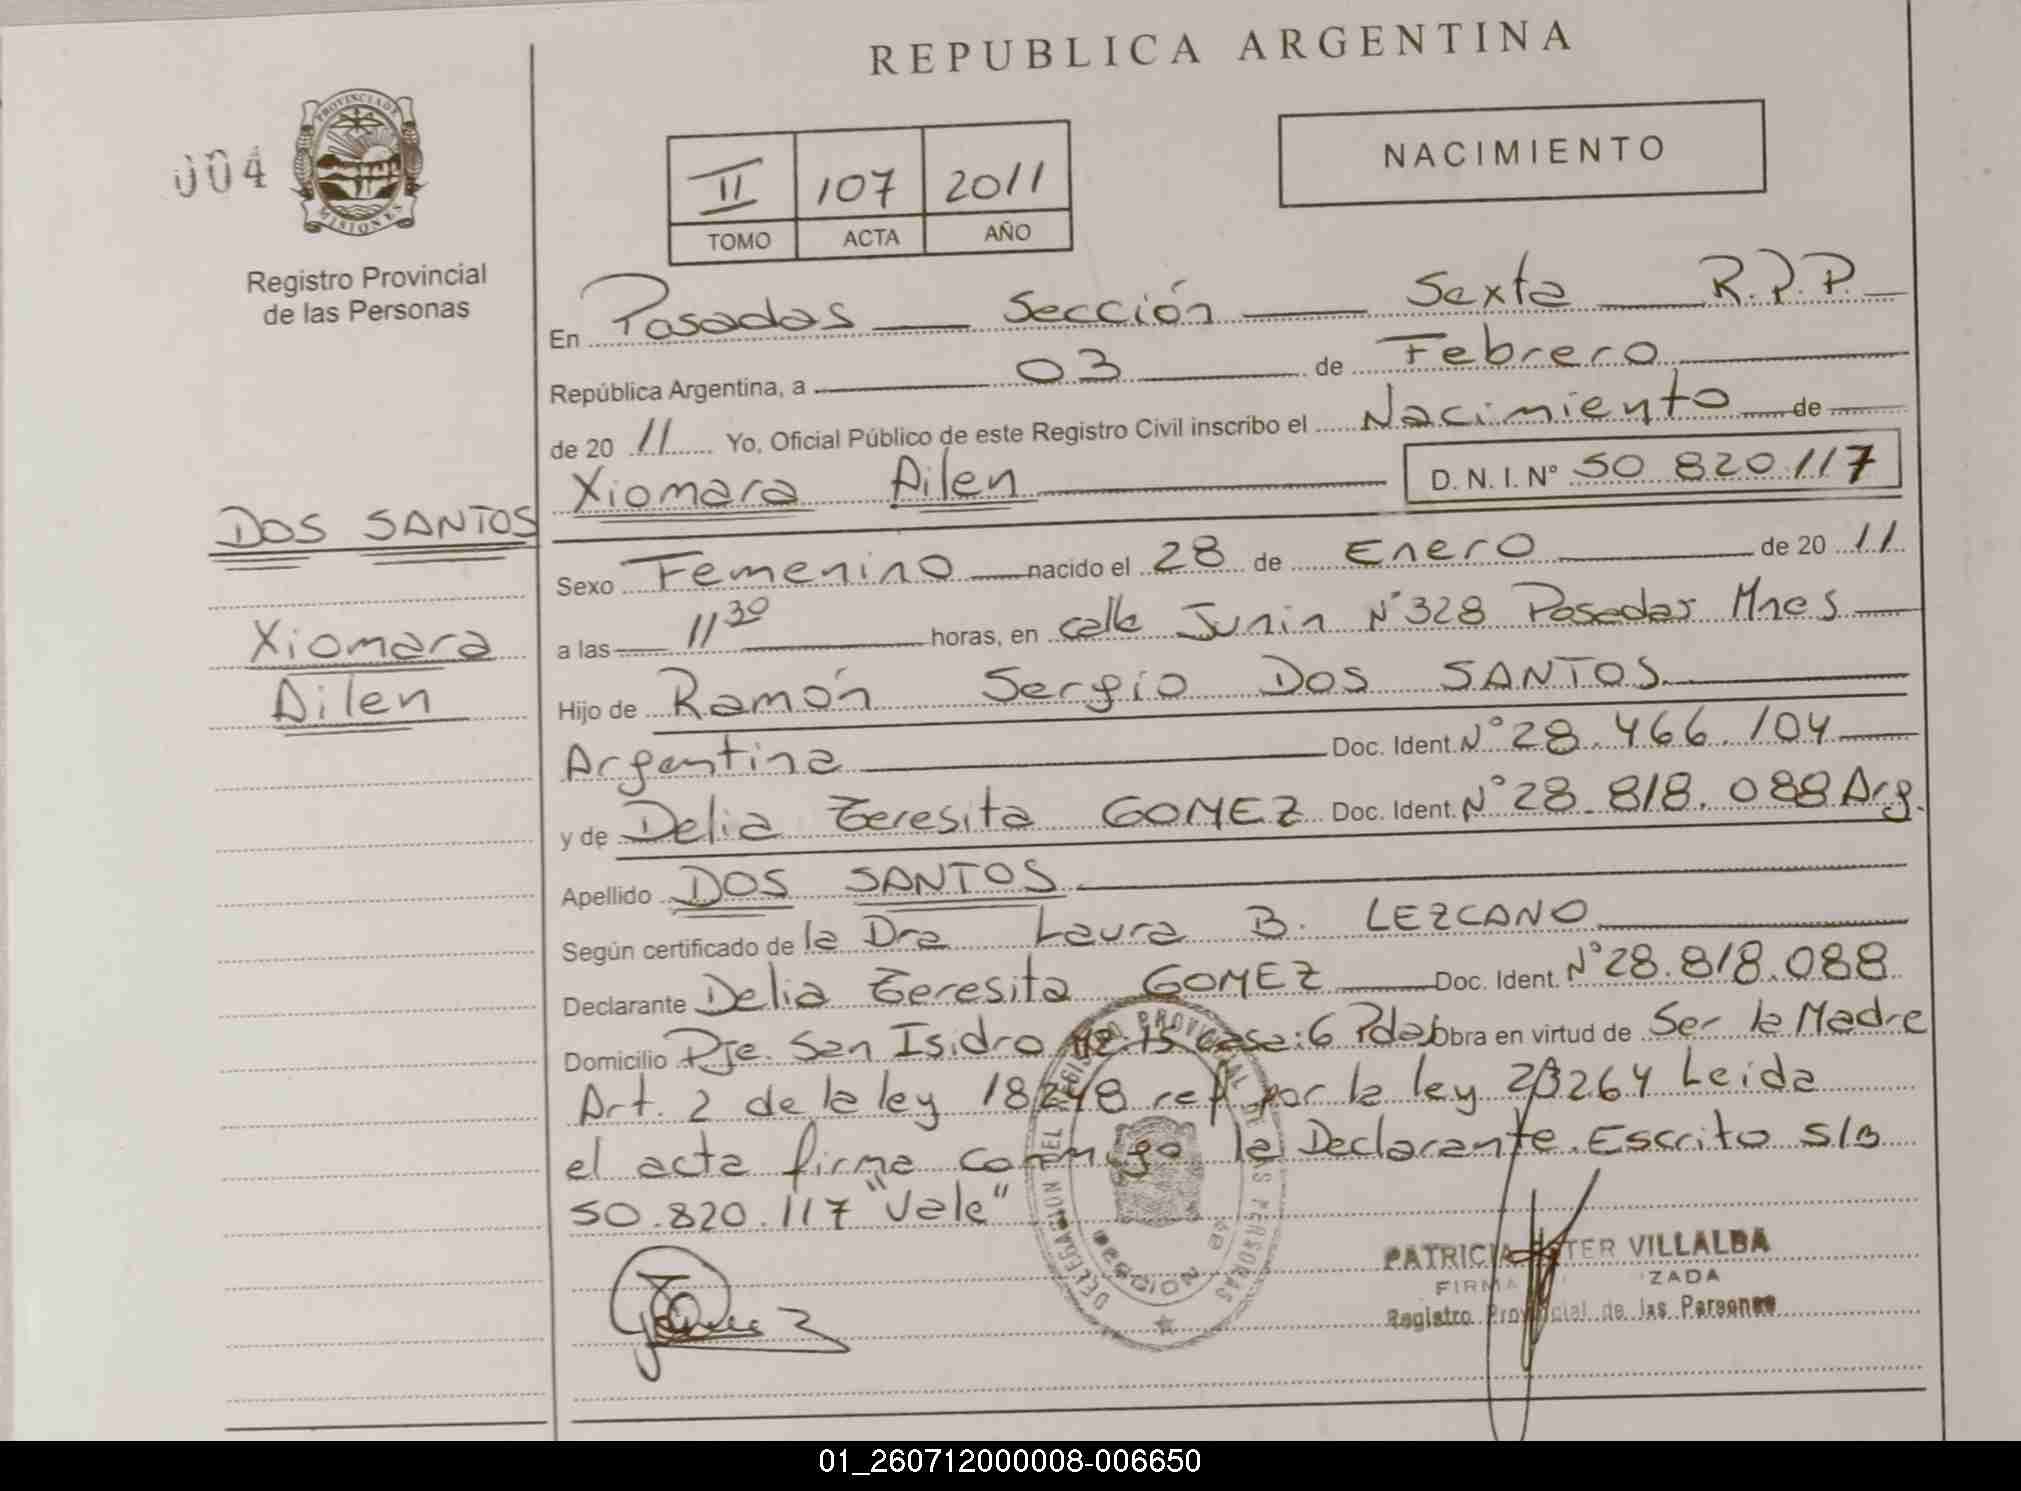 REPUBLICA ARGENTINA
004
PROVINCIA DE
MISIONES
Registro Provincial
de las Personas
II 107 2011
TOMO ACTA AÑO
NACIMIENTO
En Posadas Sección Sexta R.P.P.
República Argentina, a 03 de Febrero
de 20 11 Yo, Oficial Público de este Registro Civil inscribo el Nacimiento de
Xiomara Ailen D. N. I. N° 50 820.117
DOS SANTOS
Xiomara
Ailen
Sexo Femenino nacido el 28 de Enero de 20 11
a las 11 30 horas, en calle Junin N° 328 Posadas Mnes
Hijo de Ramón Sergio DOS SANTOS
Argentina Doc. Ident. N° 28.466.104
y de Delia Teresita GOMEZ Doc. Ident. N° 28.818.088 Arg.
Apellido DOS SANTOS
Según certificado de la Dra Laura B. LEZCANO
Declarante Delia Teresita GOMEZ Doc. Ident. N° 28.818.088
Domicilio Pje. San Isidro casa:6 Pdas Obra en virtud de Ser la Madre
Art. 2 de la ley 18248 ref por la ley 23264 Leida
el acta firma conmigo la Declarante. Escrito S/B
50.820.117 "Vale"
DELEGACION DEL REGISTRO PROVINCIAL DE LAS PERSONAS
PATRICIA VILLALBA
Registro Provincial de las Personas
01_260712000008-006650